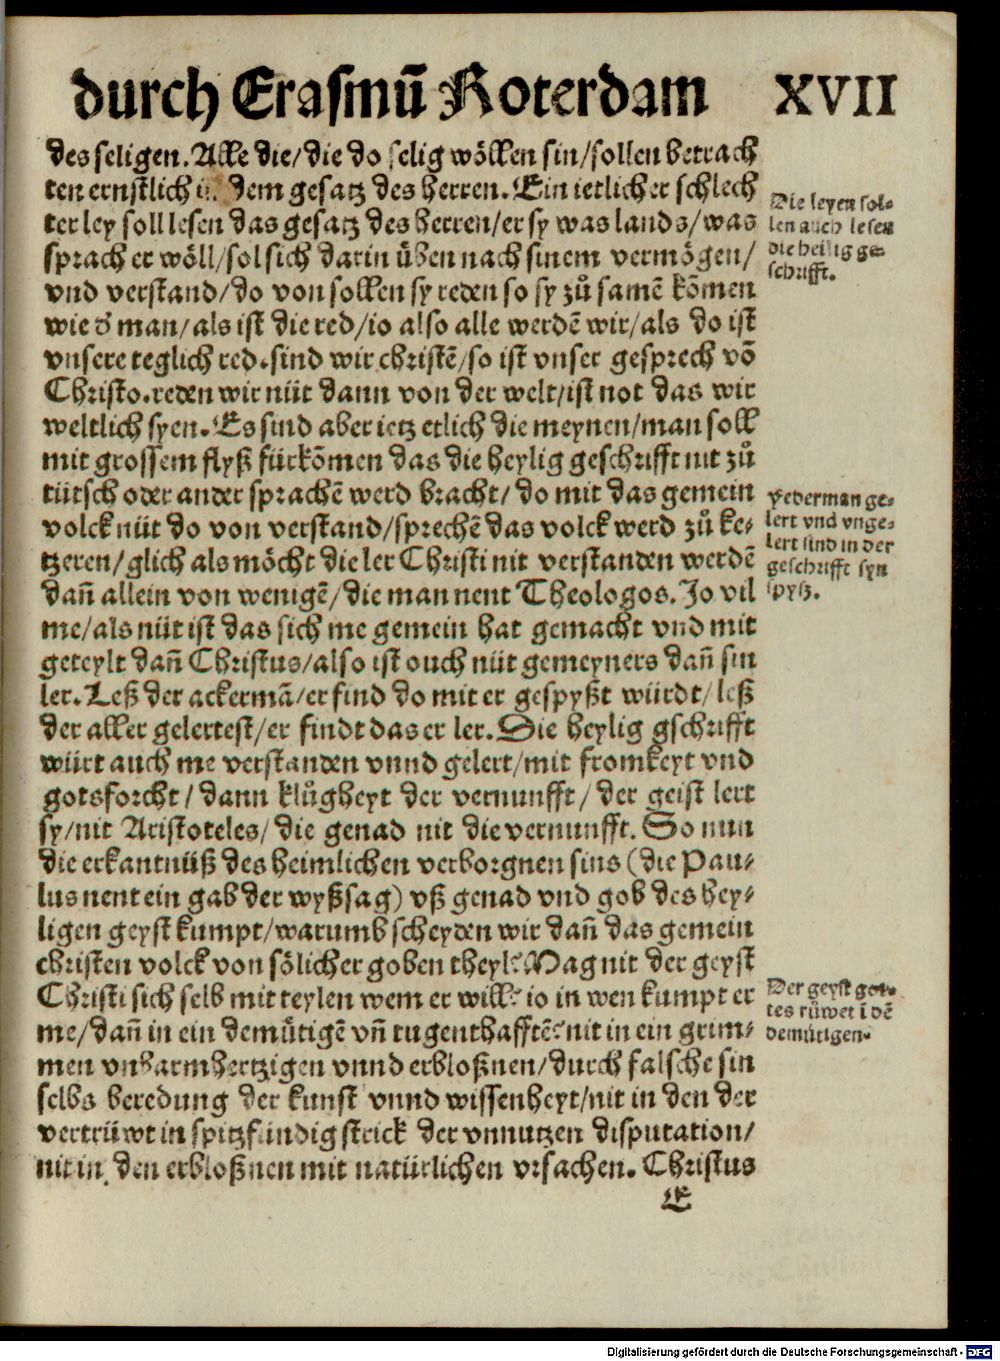 durch Erasmū Roterdam XVII
des seligen. Alle die/die do selig wöllen sin/sollen betrach
ten ernstlich in dem gesatz des herren. Ein ietlicher schlech
ter ley soll lesen das gesatz des herren/er sy was lands/was
sprach er wöll/sol sich darin üben nach sinem vermögen/
vnd verstand/do von sollen sy reden so sy zů samē kōmen
wie d' man/als ist die red/io also alle werdē wir/als do ist
vnsere teglich red.sind wir christē/so ist vnser gesprech vō
Christo.reden wir nüt dann von der welt/ist not das wir
weltlich syen. Es sind aber ietz etlich die meynen/man soll
mit grossem flyß fürkōmen das die heylig geschrifft nit zů
tütsch oder ander sprachē werd bracht/do mit das gemein
volck nüt do von verstand/sprechē das volck werd zů ke-
tzeren/glich als möcht die ler Christi nit verstanden werdē
dañ allein von wenigē/die man nent Theologos. Jo vil
me/als nüt ist das sich me gemein hat gemacht vnd mit
geteylt dañ Christus/also ist ouch nüt gemeyners dañ sin
ler. Leß der ackermā/er find do mit er gespyßt würdt/leß
der aller gelertest/er findt das er ler. Die heylig gschrifft
würt auch me verstanden vnnd gelert/mit fromkeyt vnd
gotsforcht/dann klůgheyt der vernunfft/der geist lert
sy/nit Aristoteles/die genad nit die vernunfft. So nun
die erkantnüß des heimlichen verborgnen sins (die Pau-
lus nent ein gab der wyßsag) vß genad vnd gob des hey-
ligen geyst kumpt/warumb scheyden wir dañ das gemein
christen volck von sölicher goben theyl? Mag nit der geyst
Christi sich selb mitteylen wem er will? io in wen kumpt er
me/dañ in ein demütigē vñ tugenthafftē? nit in ein grim-
men vnbarmhertzigen vnnd erbloßnen/durch falsche sin
selbs beredung der kunst vnnd wissenheyt/nit in den der
vertrüwt in spitzfündig strick der vnnutzen disputation/
nit in den erbloßnen mit natürlichen vrsachen. Christus
E
Die leyen sol-
len auch lesen
die heilig ge-
schrifft.
Yederman ge-
lert vnd vnge-
lert sind in der
geschrifft syn
spyß.
Der geyst got-
tes růwet ī dē
demütigen.
Digitalisierung gefördert durch die Deutsche Forschungsgemeinschaft - DFG